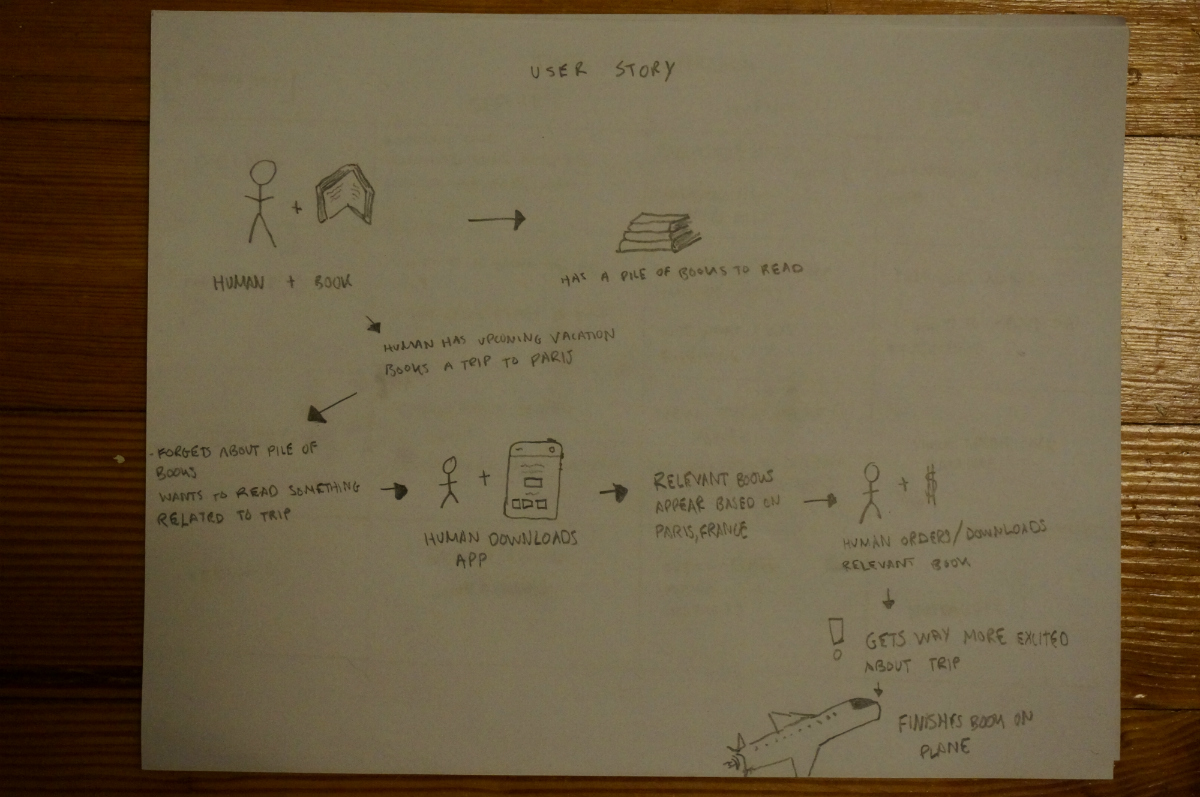 USER STORY
HUMAN + BOOK
HAS A PILE OF BOOKS TO READ
HUMAN HAS UPCOMING VACATION
BOOKS A TRIP TO PARIS
- FORGETS ABOUT PILE OF
BOOKS
WANTS TO READ SOMETHING
RELATED TO TRIP
HUMAN DOWNLOADS
APP
RELEVANT BOOKS
APPEAR BASED ON
PARIS, FRANCE
+ $
HUMAN ORDERS/DOWNLOADS
RELEVANT BOOK
! GETS WAY MORE EXCITED
ABOUT TRIP
FINISHES BOOK ON
PLANE